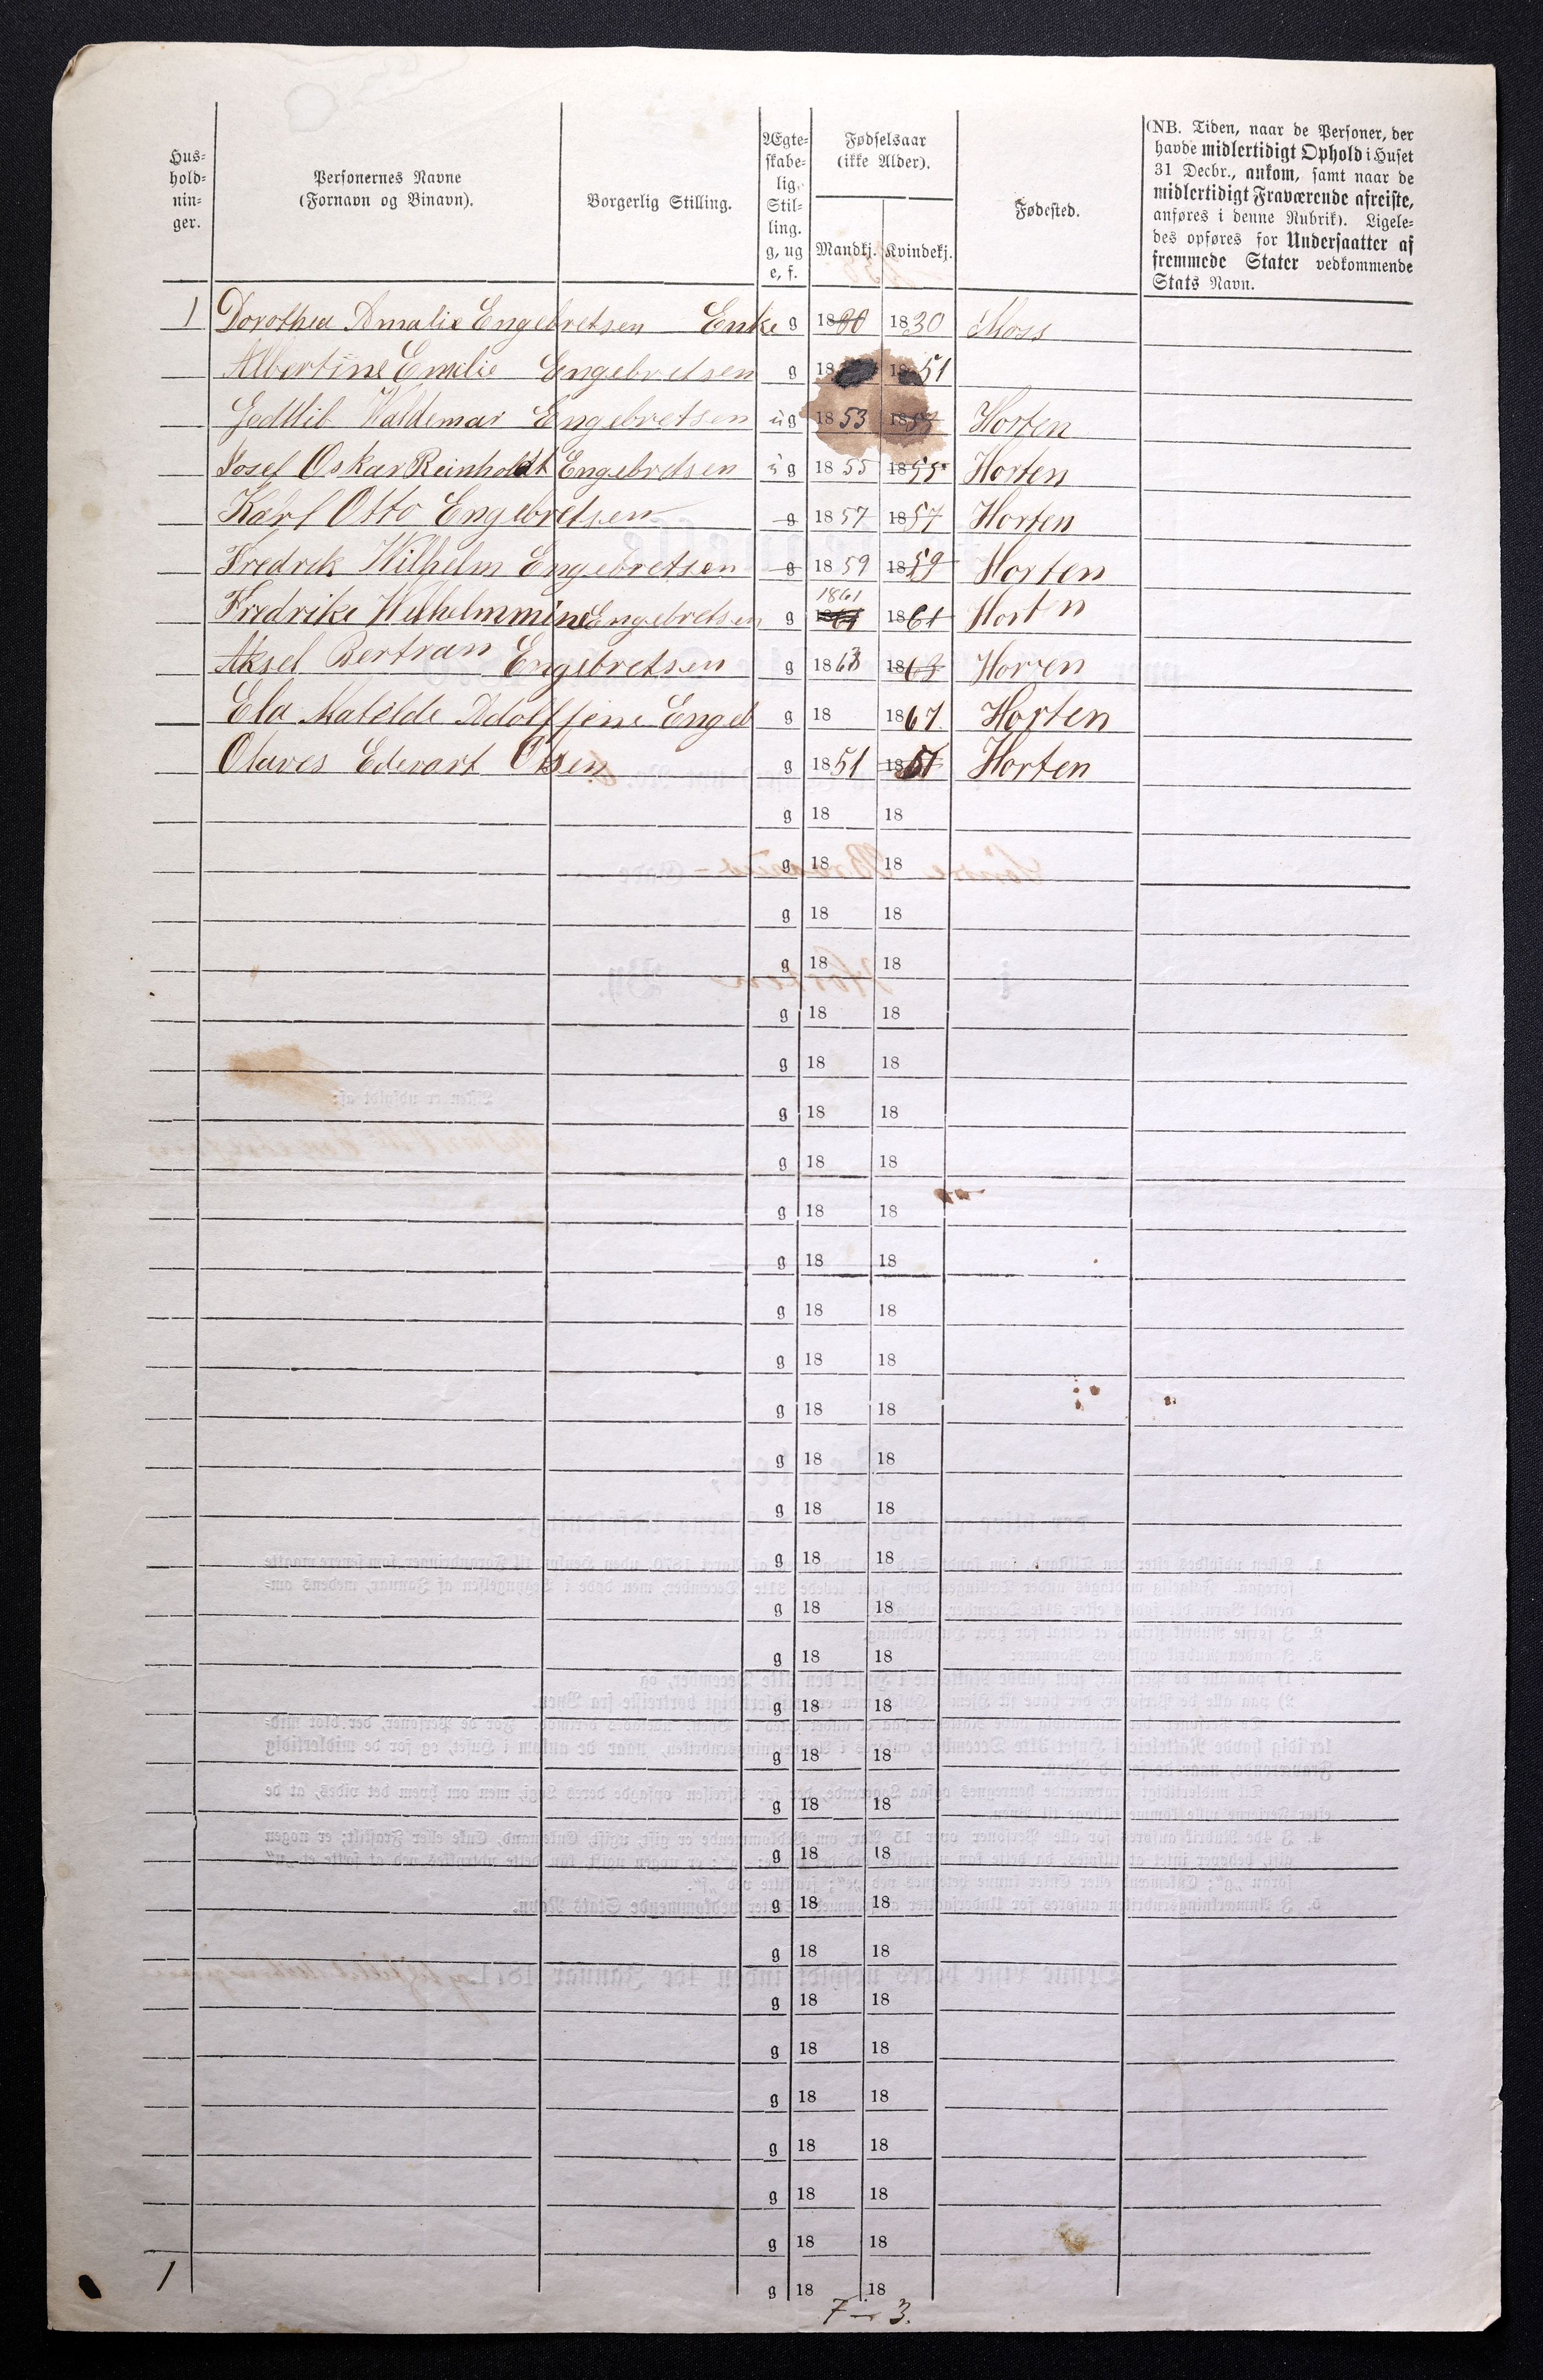 Hus-
hold-
nin-
ger.
Personernes Navne
(Fornavn og Binavn).
Borgerlig Stilling.
Ægte-
skabe-
lig
Stil-
ling.
g, ug
e, f.
Fødselsaar
(ikke Alder).
Mandkj. Kvindekj.
Fødested.
(NB. Tiden, naar de Personer, der
havde midlertidigt Ophold i Huset
31 Decbr., ankom, samt naar de
midlertidigt Fraværende afreiste,
anføres i denne Rubrik). Ligele-
des opføres for Undersaatter af
fremmede Stater vedkommende
Stats Navn.
1 Dorothea Amalie Engebretsen Enke g 1830 1830 Moss
Albertine Emilie Engebretsen g 18 1851
Godtlib Waldemar Engebretsen ug 1853 1853 Horten
Josef Oskar Reinholdt Engebretsen ug 1855 1855 Horten
Karl Otto Engebretsen g 1857 1857 Horten
Fredrik Wilhelm Engebretsen g 1859 1859 Horten
1861
Fredrike Wilhelmmine Engebretsen g 1861 1861 Hortn
Aksel Bertran Engebretsen g 1863 1863 Horten
Ela Matelde Adolffene Engeb g 18 1867 Horten
Olaves Edevart Olsen g 1851 1851 Horten
g 18 18
g 18 18
g 18 18
g 18 18
g 18 18
g 18 18
g 18 18
g 18 18
g 18 18
g 18 18
g 18 18
g 18 18
g 18 18
g 18 18
g 18 18
g 18 18
g 18 18
g 18 18
g 18 18
g 18 18
g 18 18
g 18 18
g 18 18
g 18 18
g 18 18
g 18 18
g 18 18
g 18 18
g 18 18
g 18 18
1 g 18 18
7 3.